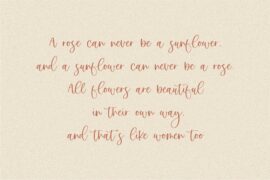 A rose can never be a sunflower,
and a sunflower can never be a rose.
All flowers are beautiful
in their own way,
and that's like women too